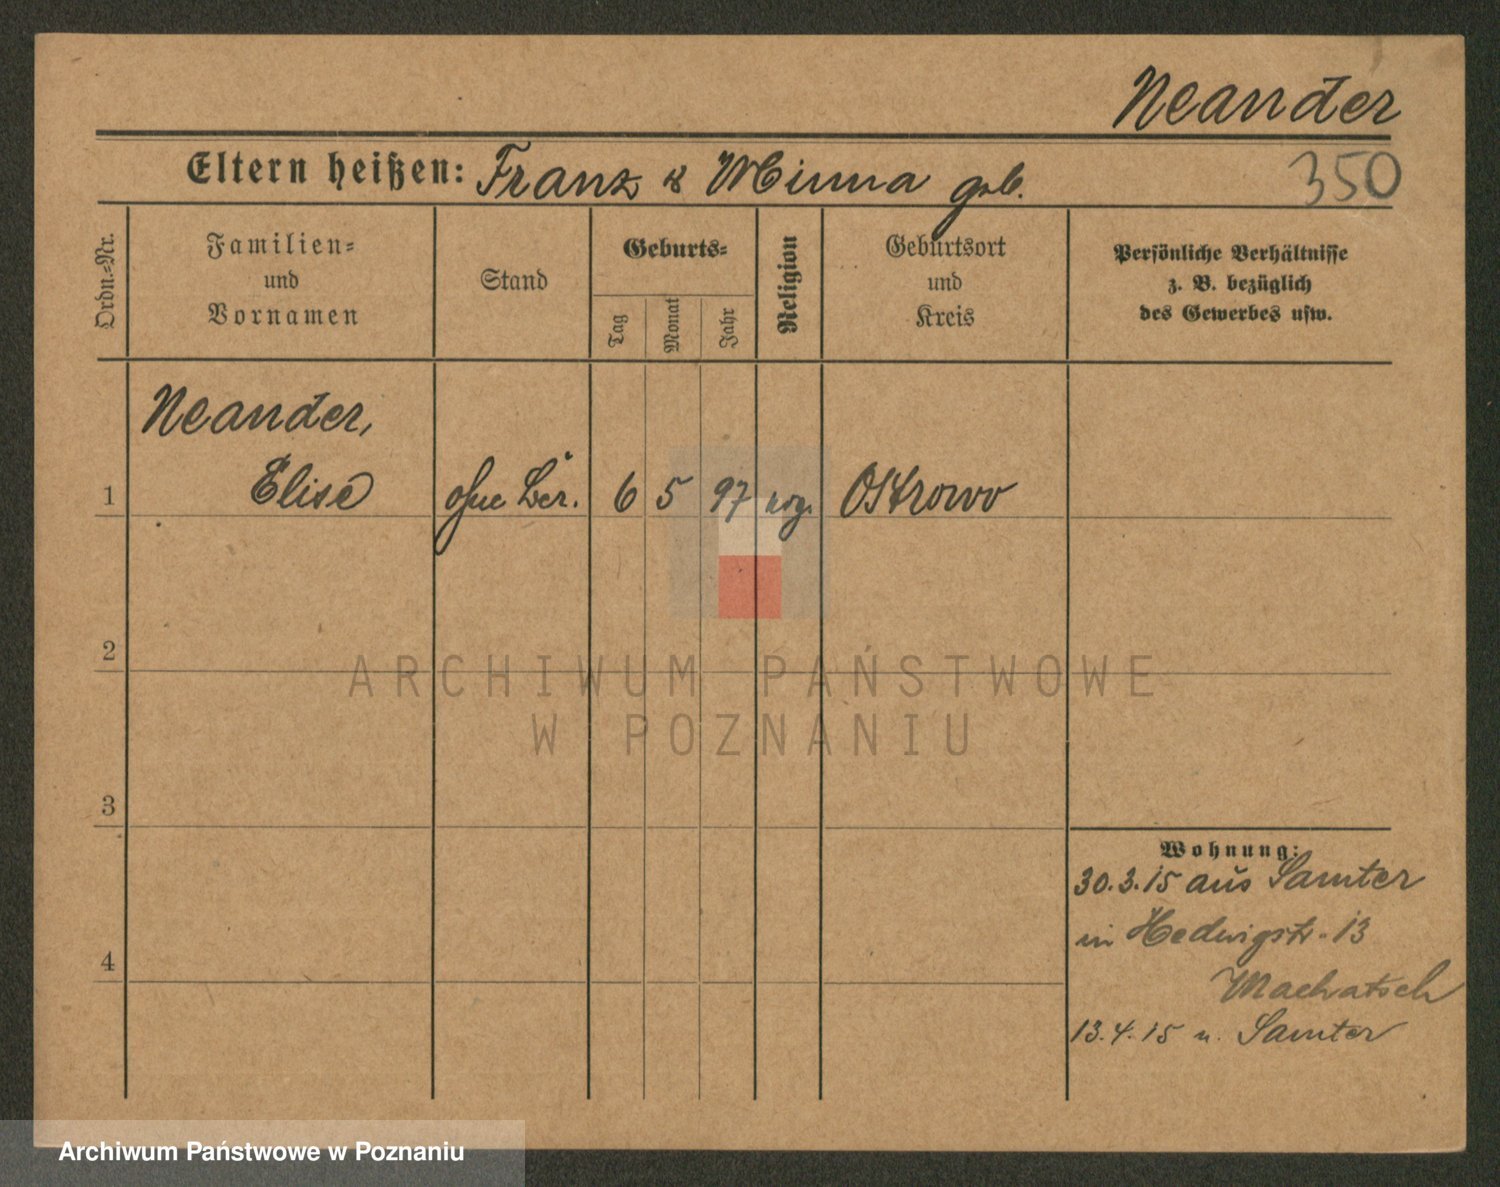 Neander
Eltern heißen: Franz & Minna geb.
350
Ordn.=Nr.
Familien=
und
Vornamen
Stand
Geburts=
Tag
Monat
Jahr
Religion
Geburtsort
und
Kreis
Persönliche Verhältnisse
z. B. bezüglich
des Gewerbes usw.
Neander,
1 Elise ohne Ber. 6 5 97 Ostrowo
2
3
4
Wohnung:
30.3.15 aus Samter
in Hedwigstr. 13
Machatsch
13.4.15 n. Samter
ARCHIWUM PAŃSTWOWE
W POZNANIU
Archiwum Państwowe w Poznaniu